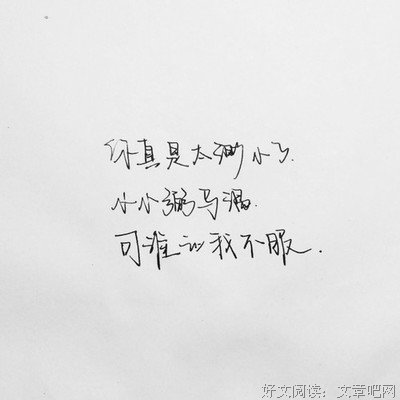 你真是太渺小了.
小小弼马温.
可谁我不服.
好文阅读：文章吧网